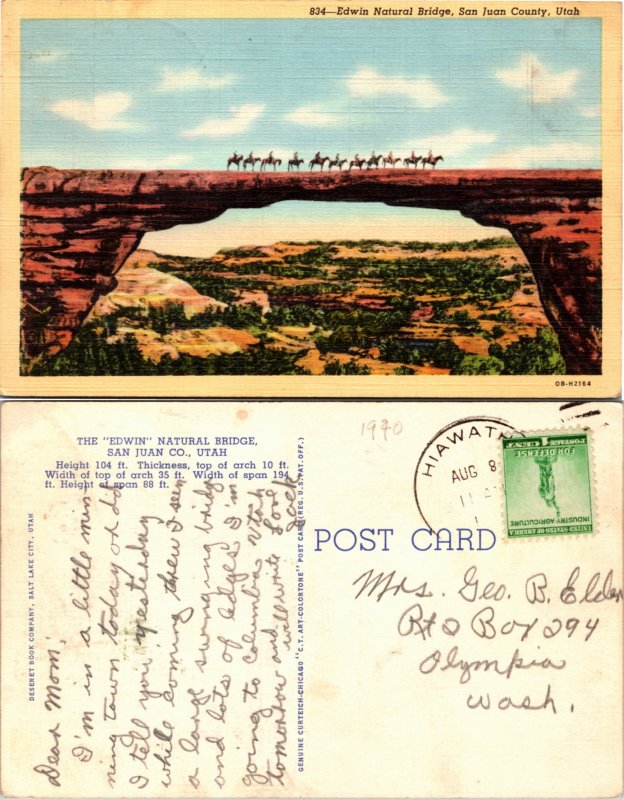 834—Edwin Natural Bridge, San Juan County, Utah
OB-H2164
THE "EDWIN" NATURAL BRIDGE,
SAN JUAN CO., UTAH
Height 104 ft. Thickness, top of arch 10 ft.
Width of top of arch 35 ft. Width of span 194
ft. Height of span 88 ft.
DESERET BOOK COMPANY, SALT LAKE CITY, UTAH
Dear Mom:
I'm in a little min
ning town today
I tell you yesterday
while coming threw I seen
a large swinging bridg
and lots of ledges. I'm
going to columbia Utah
tomorrow and will write
Love
Jack
GENUINE CURTEICH-CHICAGO "C.T. ART-COLORTONE" POST CARD (REG. U.S. PAT. OFF.)
1940
HIAWATH
AUG 8
11 A
POST CARD
1 CENT 1
FOR DEFENSE
INDUSTRY-AGRICULTURE
UNITED STATES OF AMERICA
POSTAGE
Mrs. Geo. B. Elder
Rt 2 Box 294
Olympia
Wash.